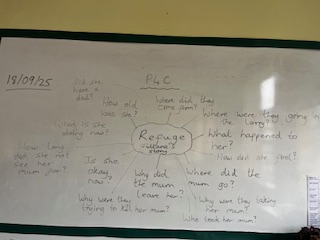 18/09/25
P4C
Did she
have a
dad?
How old
was she?
Where did they
come from?
Where were they going in
the lorry?
What is she
doing now?
Refuge
story
What happened to
her?
How did she feel?
How long
did she not
see her
mum for?
Is she
okay
now?
Why did
the mum
leave her?
Where did the
mum go?
Why were they
trying to kill her mum?
Why were they taking
her mum?
Who took her mum?